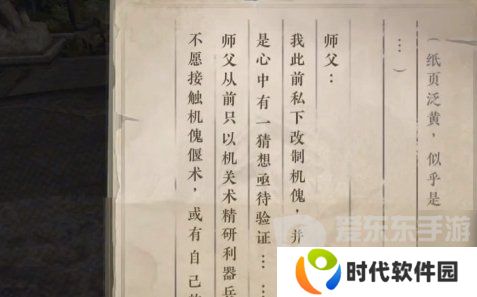 （纸页泛黄，似乎是
…）
师父：
我此前私下改制机傀，并
是心中有一猜想亟待验证……
师父从前只以机关术精研利器兵
不愿接触机傀偃术，或有自己的
爱东东手游
时代软件园